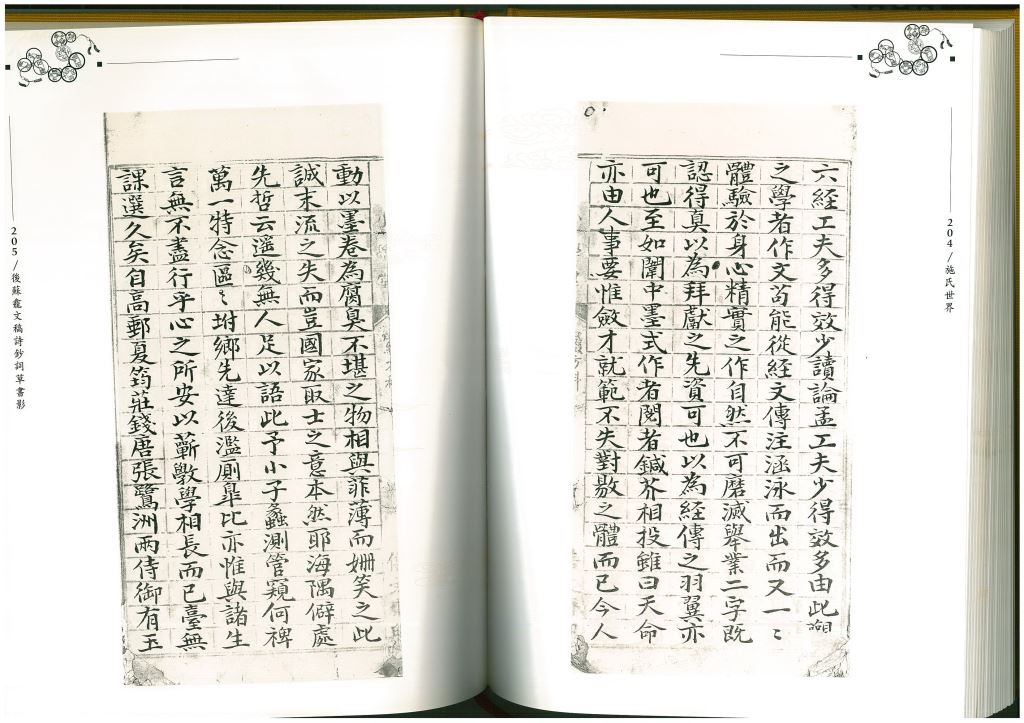 204／施氏世界
六經工夫多得效少讀論孟工夫少得效多由此
之學者作文苟能從經文傳注涵泳而出而又一〻
體驗於身心精實之作自然不可磨滅舉業二字既
認得真以為拜獻之先資可也以為經傳之羽翼亦
可也至如闈中墨式作者閱者鍼芥相投雖曰天命
亦由人事要惟斂才就範不失對敭之體而已今人
動以墨卷為腐臭不堪之物相與詆薄而姍笑之此
誠末流之失而豈國家取士之意本然耶海隅僻處
先哲云遙幾無人足以語此予小子蠡測管窺何裨
萬一特念區〻坿鄉先達後濫廁皐比亦惟與諸生
言無不盡行乎心之所安以蘄斆學相長而已臺無
課選久矣自高郵夏筠莊錢唐張鷺洲兩侍御有玉
205／後蘇龕文稿詩鈔詞草書影